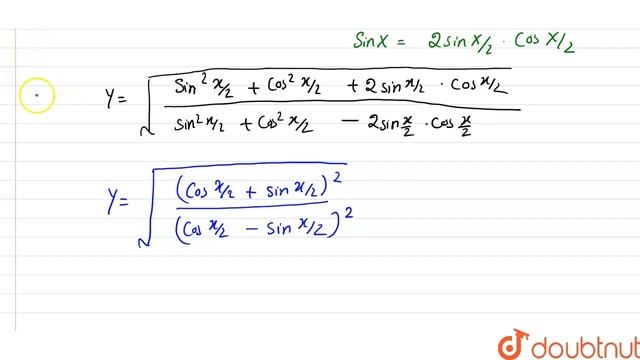 Sin X = 2 sin X/2 · Cos X/2
Y = √((Sin² x/2 + Cos² x/2 + 2 sin x/2 · Cos x/2) / (sin² x/2 + Cos² x/2 − 2 sin x/2 · Cos x/2))
Y = √((Cos x/2 + sin x/2)² / (Cos x/2 − sin x/2)²)
doubtnut